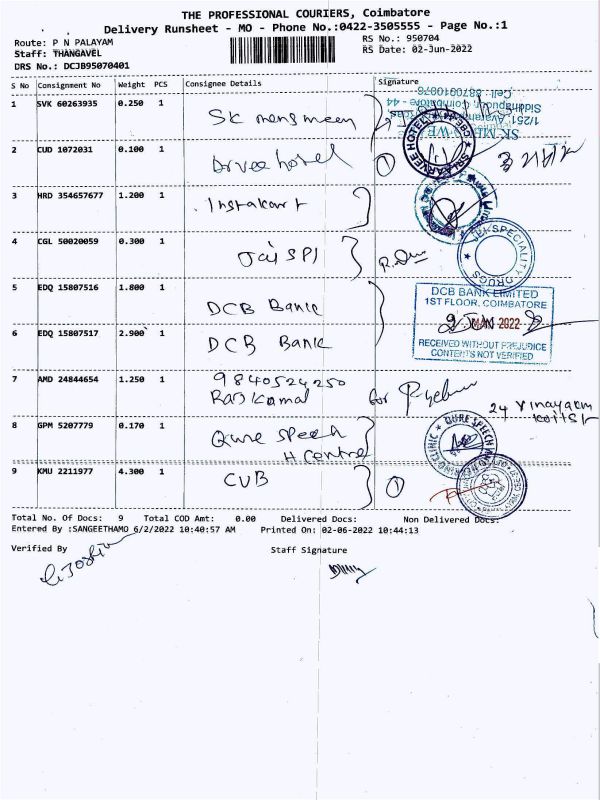 THE PROFESSIONAL COURIERS, Coimbatore
Delivery Runsheet - MO - Phone No.:0422-3505555 - Page No.:1
Route: P N PALAYAM
RS No.: 950704
Staff: THANGAVEL
RS Date: 02-Jun-2022
DRS No.: DCJB95070401
S No Consignment No Weight PCS Consignee Details Signature
1 SVK 60263935 0.250 1 SK mens
2 CUD 1072031 0.100 1 hotel
3 HRD 354657677 1.200 1 Instakart
4 CGL 50020059 0.300 1 Jai SPI
JEI SPECIALITY DRUGS
5 EDQ 15807516 1.800 1 DCB Bank
DCB BANK LIMITED
1ST FLOOR, COIMBATORE
2022
6 EDQ 15807517 2.900 1 DCB Bank
RECEIVED WITHOUT PREJUDICE
CONTENTS NOT VERIFIED
7 AMD 24844654 1.250 1 9840524250
Raj Kamal for
24 Vinayagm
8 GPM 5207779 0.170 1 Qure Speech
H. Centre
9 KMU 2211977 4.300 1 CUB
Total No. Of Docs: 9 Total COD Amt: 0.00 Delivered Docs: Non Delivered Docs:
Entered By :SANGEETHAMO 6/2/2022 10:40:57 AM Printed On: 02-06-2022 10:44:13
Verified By Staff Signature